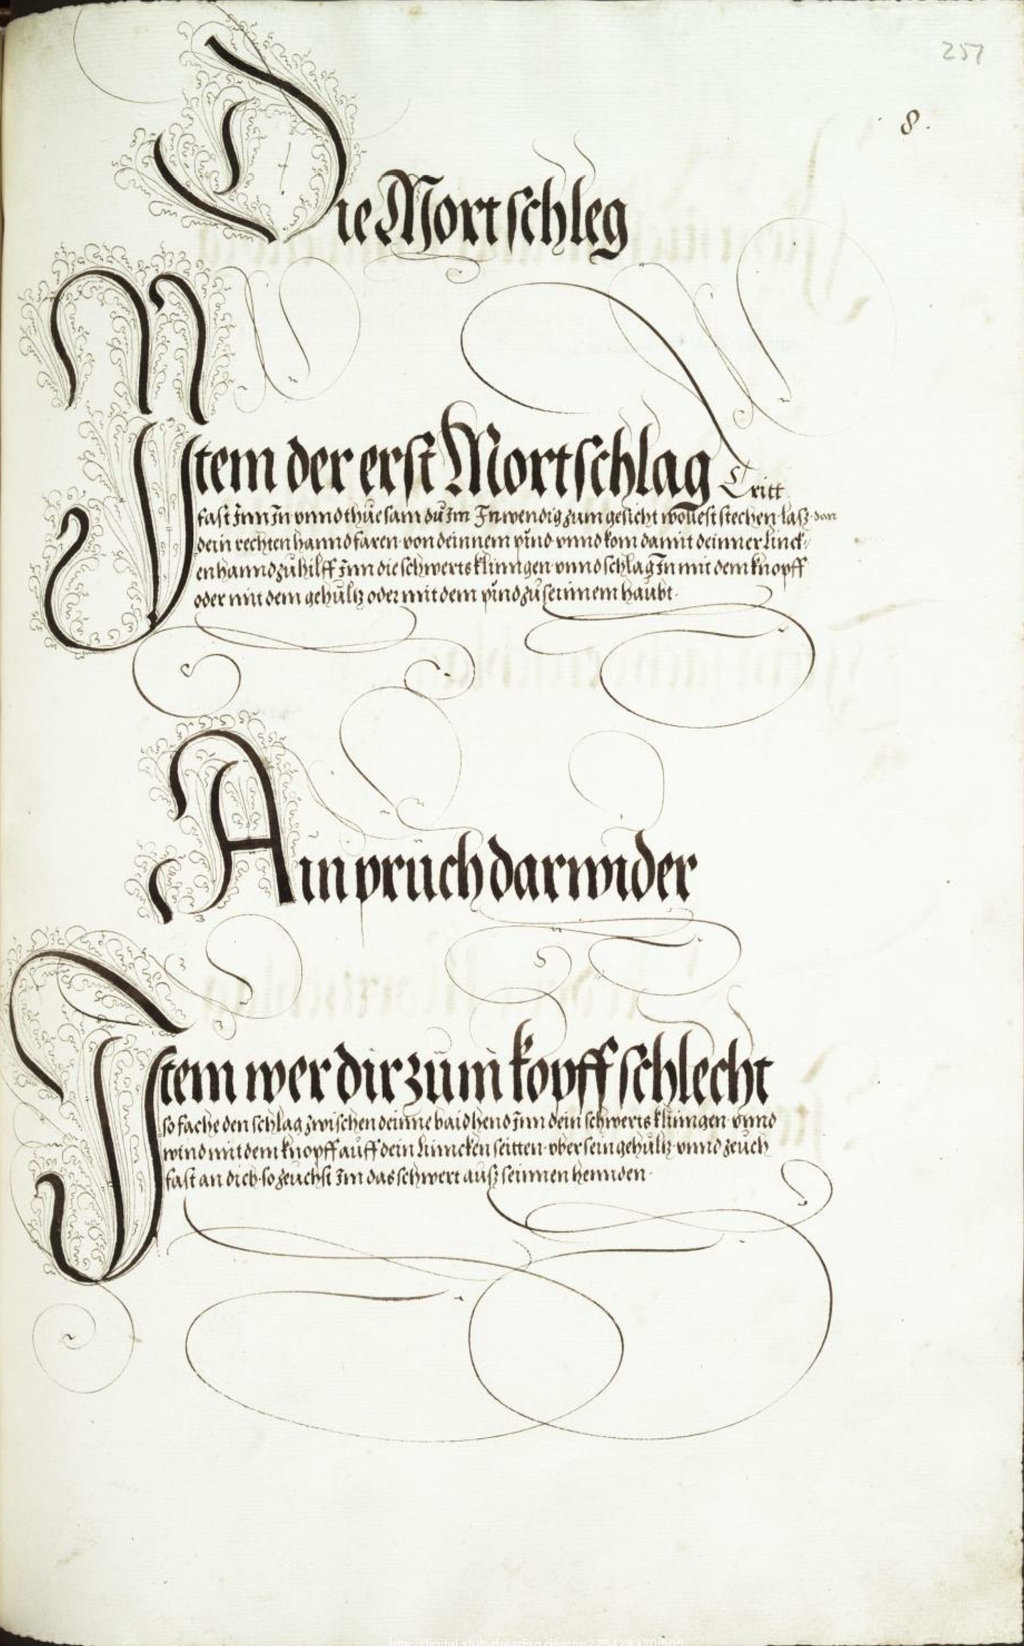 257
8.
Die Mortschleg
Ytem der erst Mortschlag Tritt
fast Inn In vnnd thue sam du Im Inwendig zum gesicht wollest stechen · lasz dan
dein rechten hannd faren · von deinnem pind vnnd kom damit deinner Linck-
en hannd zu hilff Inn die schwertsklinngen · vnnd schlag In mit dem knopff
oder mit dem gehultz oder mit dem pind zu seinnem haubt ·
Ain pruch darwider
Item wer dir zum kopff schlecht
so fache den schlag zwischen deinne baid hend Inn dein schwertsklinngen · vnnd
wind mit dem knopff auff dein Linncken seitten · vber sein gehultz · vnnd zeuch
fast an dich · so zeuchst Im das schwert ausz seinnen hennden ·